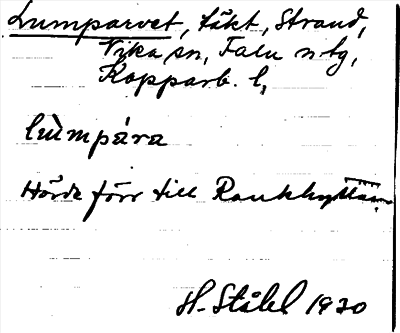 Lumparvet, täkt, Strand,
Vika sn, Falu ntg,
Kopparb. l,
lùmpára
Hörde förr till Rankhyttan.
H. Ståhl 1930